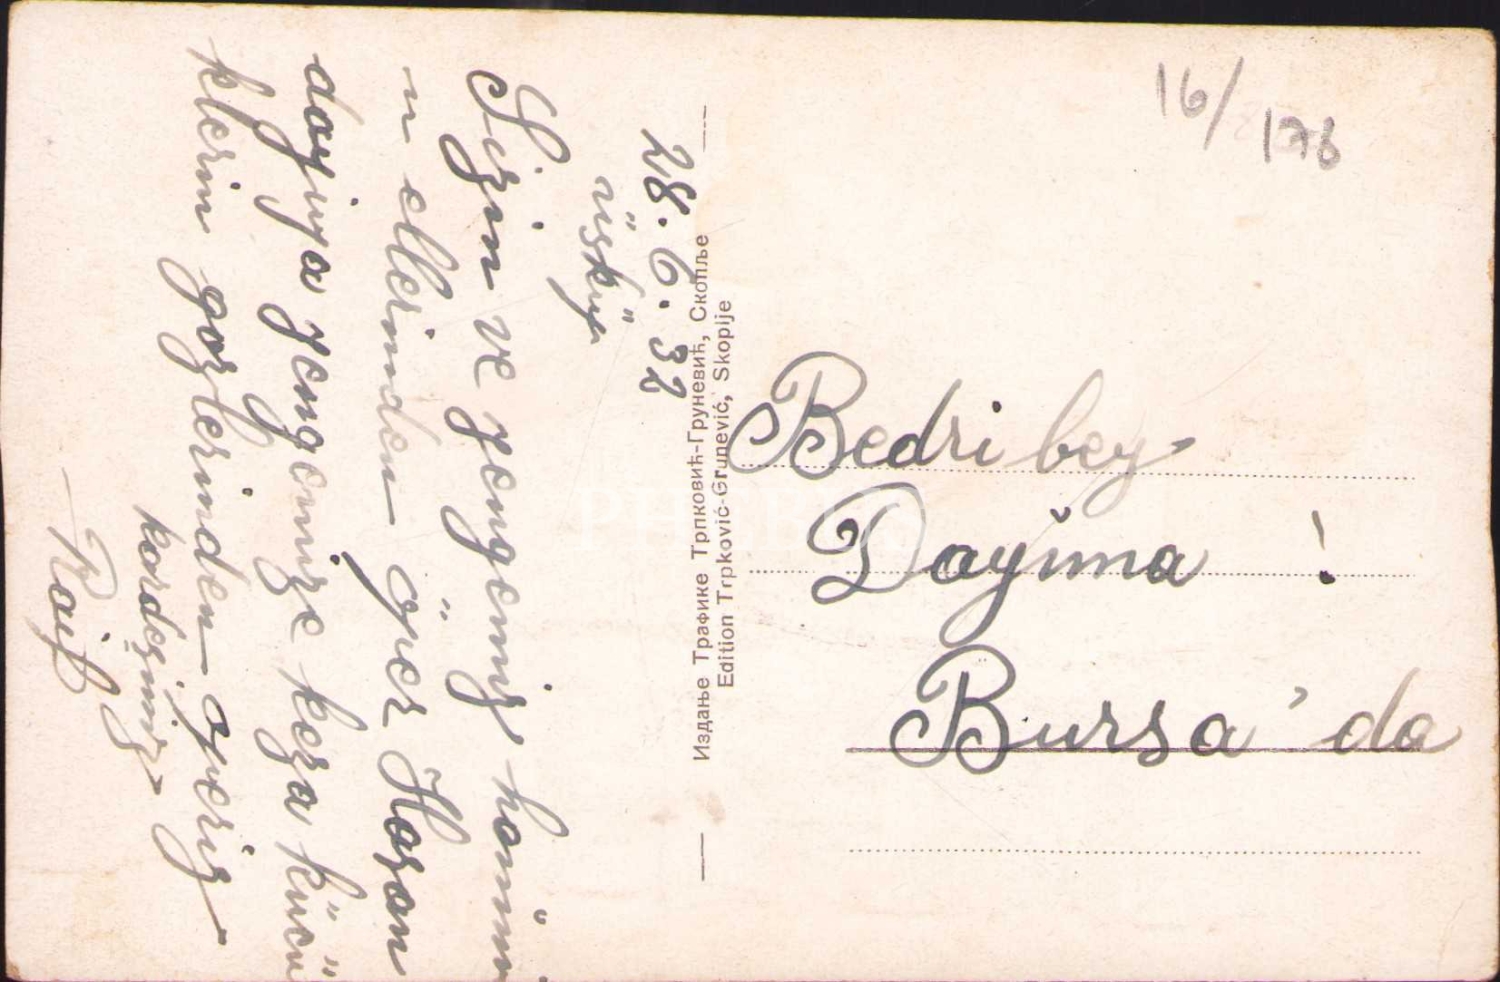 28.6.32
üsküp
Sizin ve yengemiz hanimi
n ellerinden öper Hasan
dayiya yengemize keza kücü
klerin gozlerinden operiz
kardeşiniz
Raif
Издање Трафике Трпковић-Груневић, Скопље
Edition Trpković-Grunević, Skoplje
16/
176
Bedri bey
Dayima !
Bursa'da